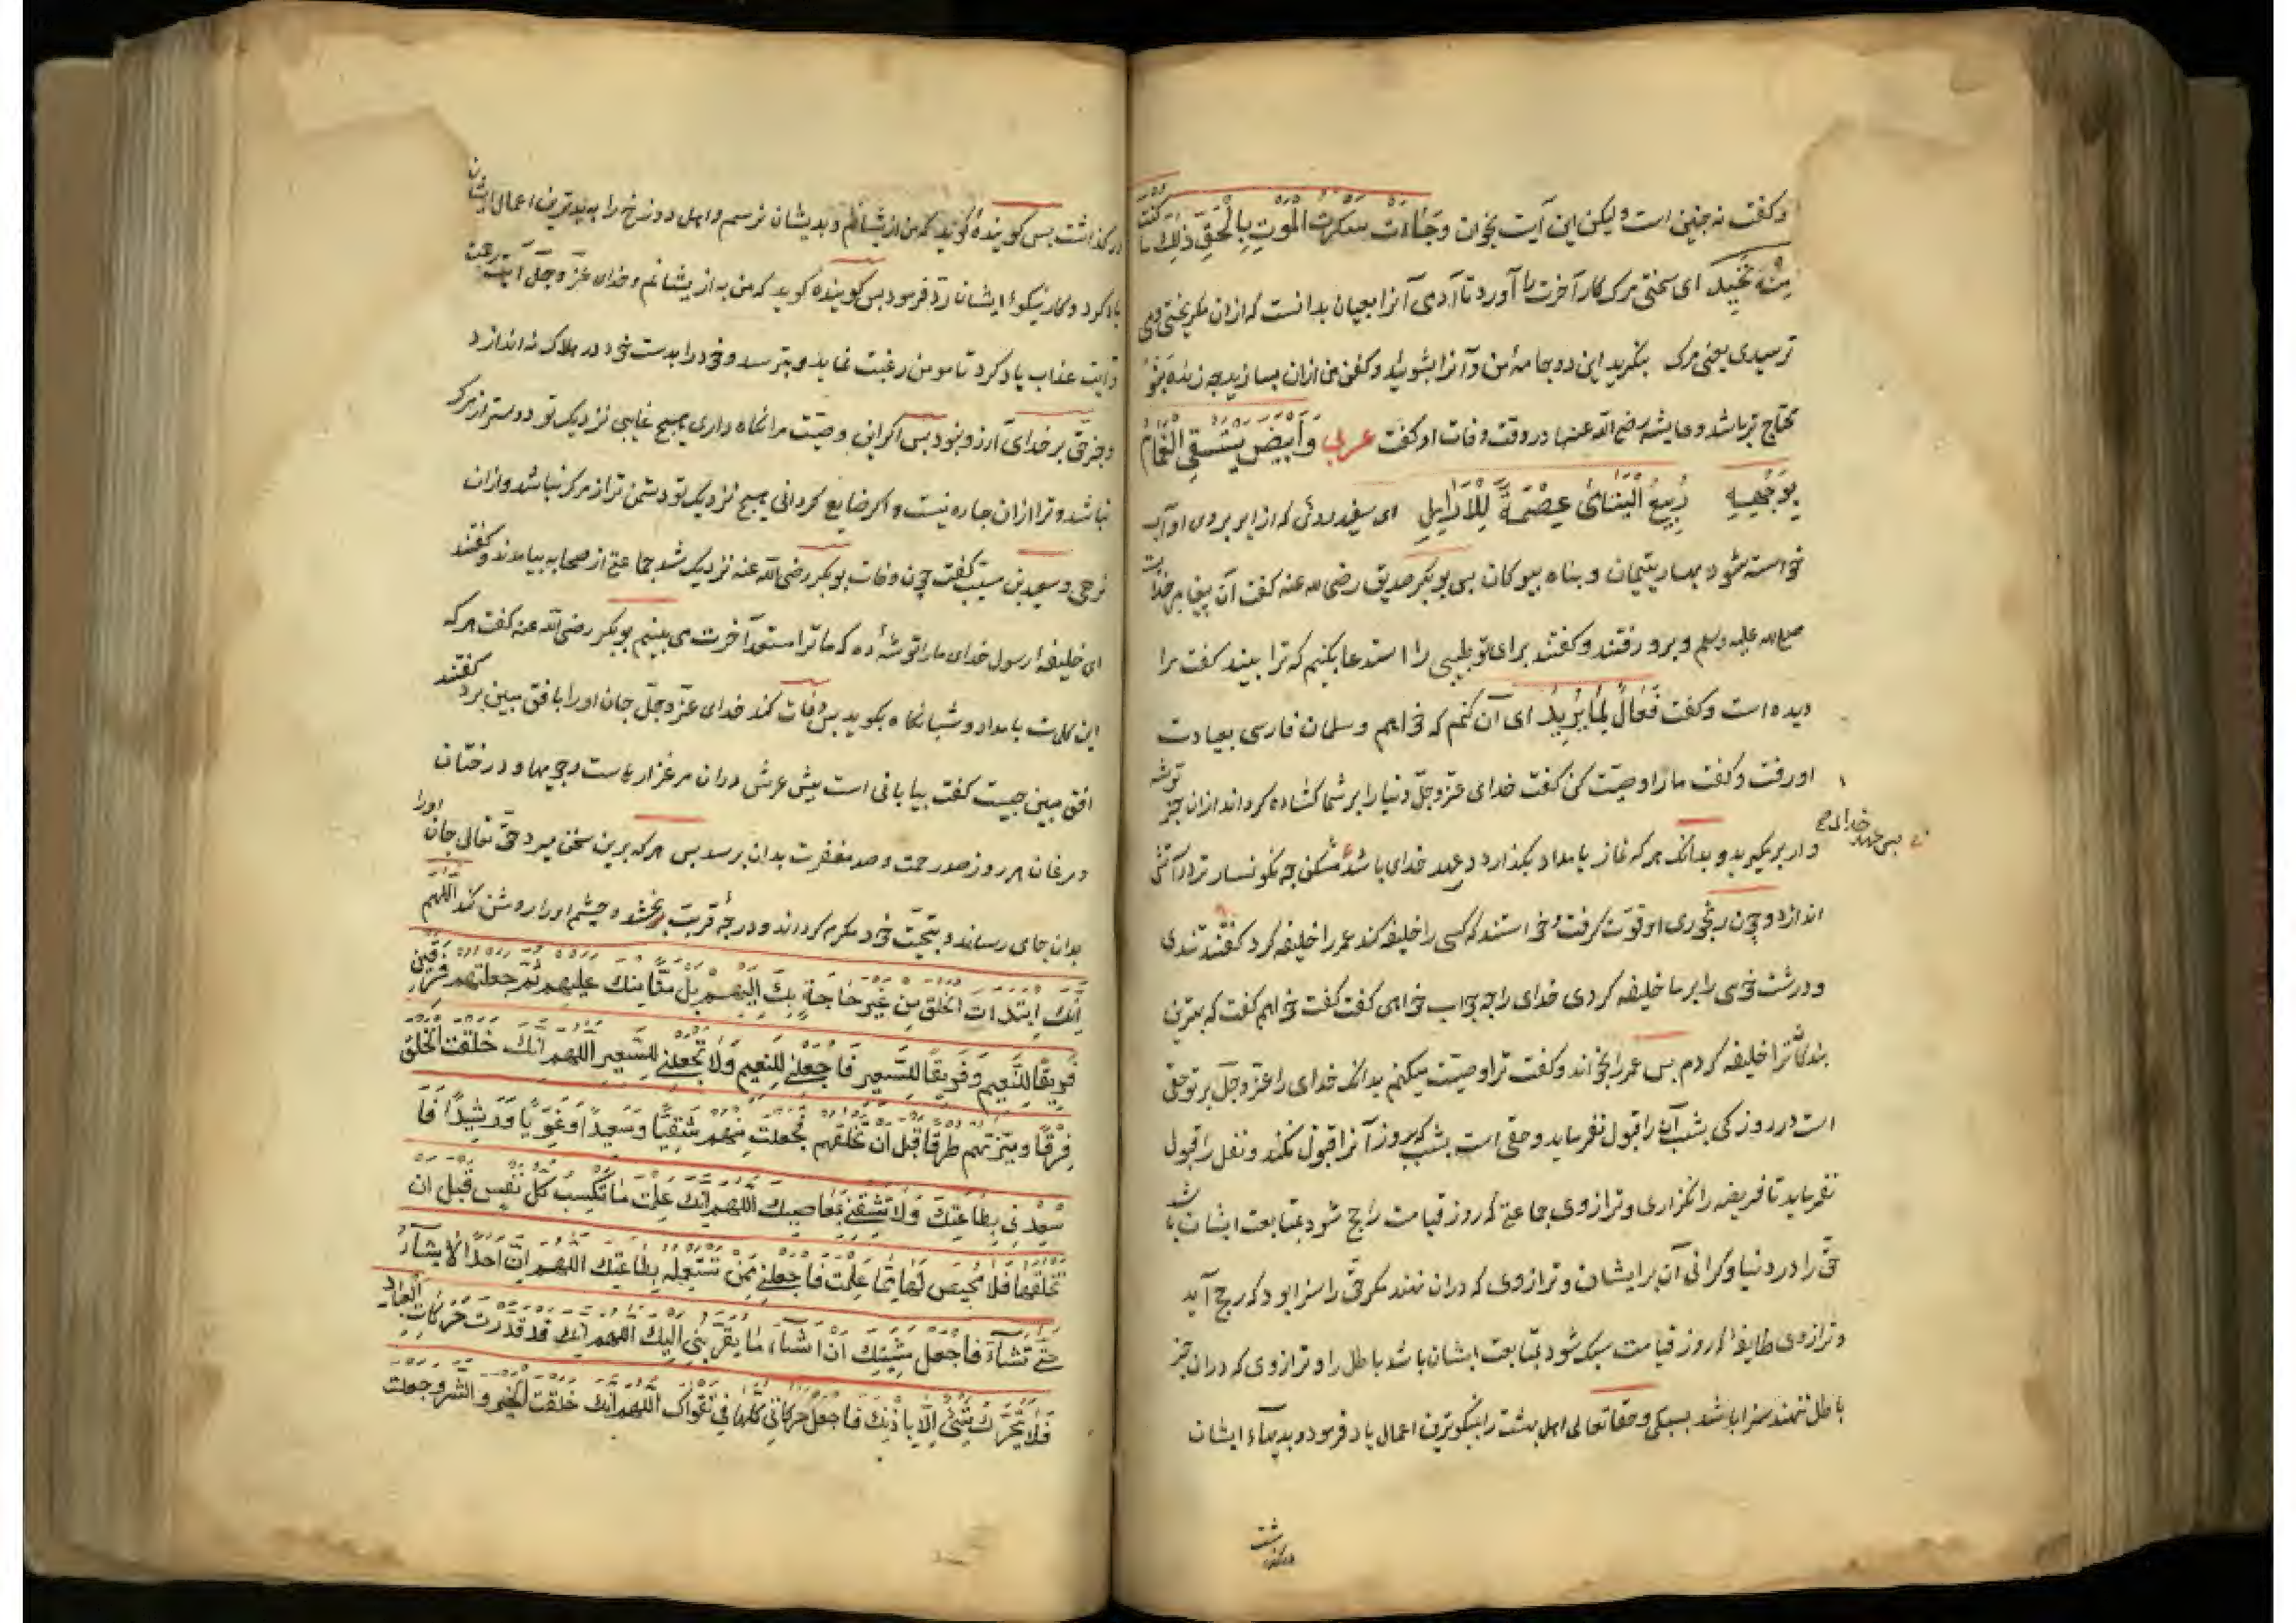 و کفت نه چنین است ولیکن این آیت بخوان وَجَاءَتْ سَكْرَتُ الْمَوْتِ بِالْحَقِّ ذٰلِكَ مَا كُنْتَ
مِنْهُ تَحِيدُ ای سختی مرک کار آخرت را آورد تا آدمی آنرا بعیان بدانست که ازان میکریختی و می
ترسیدی یعنی مرک بنکرید این دو جامهٔ من و آنرا بشوئید و کفن من ازان بسازید چه زنده بنو
محتاج تر باشد و عایشه رضی الله عنها در وقت وفات او کفت عربی وَأَبْيَضَ يُسْتَسْقَى الْغَمَامُ
بِوَجْهِهِ رَبِيعُ الْيَتَامَىٰ عِصْمَةٌ لِلْأَرَامِلِ ای سفید روئی که از ابر بروی او آب
خواسته شود بهار یتیمان و پناه بیوکان پس بوبکر صدیق رضی الله عنه کفت آن پیغامبر خداست
صلی الله علیه وسلم و برو رفتند و کفتند برای تو طبیبی را استدعا بکنیم که ترا بیند کفت مرا
دیده است و کفت فَعَّالٌ لِمَا يُرِيدُ ای آن کنم که خواهم و سلمان فارسی بعیادت
او رفت و کفت ما را وصیّت کن کفت خدای عزّ وجلّ دنیا را بر شما کشاده کرداند ازان جز توشه
وار بر مکیرید و بدانک هر که نماز بامداد بکذارد در عهد خدای باشد مشکن چه نکونسار ترا در آتش
پس عهد خدای
اندازد و چون رنجوری او قوّت کرفت و خواستند که کسی را خلیفه کند عمر را خلیفه کرد کفتند تندی
و درشت خوی را بر ما خلیفه کردی خدای را چه جواب خواهی کفت کفت خواهم کفت که بهترین
بندکان ترا خلیفه کردم پس عمر را بخواند و کفت ترا وصیّت میکنم بدانک خدای را عزّ وجلّ بر تو حقی
است در روز کی بشب آن را قبول نفرماید و حقی است بشب که بروز آنرا قبول نکند و نفل را قبول
نفرماید تا فریضه را نکزاری و ترازوی جماعتی که روز قیامت راجح شود بمتابعت ایشان باشد
حق را در دنیا و کرانی آن بر ایشان و ترازوی که دران ننهند مکر حق را سزا بود که رجح آید
و ترازوی طایفهٔ که روز قیامت سبک شود بمتابعت ایشان باشد باطل را و ترازوی که دران جز
باطل ننهند سزا باشد بسبکی و حقتعالی اهل بهشت را بنیکوترین اعمال یاد فرمود و بدیهاء ایشان
درکذشت
درکذاشت پس کوینده کوید که من ازیشانم و بدیشان نرسم و اهل دوزخ را به بدترین اعمال ایشان
یاد کرد و کار نیکوء ایشان ردّ فرمود پس کوینده کوید که من به ازیشانم و خدای عزّ وجلّ آیت رحمت
و آیت عذاب یاد کرد تا مومن رغبت نماید و بترسد و خود را بدست خود در هلاک نه اندازد
و جز حق بر خدای آرزو نبود پس اکر این وصیّت مرا نکاه داری هیچ غایبی نزدیک تو دوستر از مرک
نباشد و ترا ازان چاره نیست و اکر ضایع کردانی هیچ نزدیک تو دشمن تر از مرک نباشد و ازان
نرهی و سعید بن مسیّب کفت چون وفات بوبکر رضی الله عنه نزدیک شد جماعتی از صحابه بیامدند و کفتند
ای خلیفهٔ رسول خدای ما را توشهٔ ده که ما ترا مستعدّ آخرت می بینیم بوبکر رضی الله عنه کفت هر که
این کلمات بامداد و شبانکاه بکوید پس وفات کند خدای عزّ وجلّ جان او را بافق مبین برد کفتند
افق مبین چیست کفت بیابانی است پیش عرش دران مرغزارهاست و جویها و درختان
و مرغان هر روز صد رحمت و صد مغفرت بدان برسد پس هر که برین سخن میرد حقّ تعالی جان او را
بدان جای رساند و بتحیّت خود مکرم کرداند و درجهٔ قربت بخشد و چشم او را روشن کند اللهم
اِنَّكَ ابتدات الخلق مِن غيرِ حَاجَةٍ بِكَ اِلَيهِم بَلْ مَنًّا مِنك عليهم ثم جعلتهم فريقين
فَرِيقًا لِلنَّعِيم وَفَرِيقًا لِلسَّعِير فَاجعلني لِلنَّعِيم وَلَا تَجعلني لِلسَّعِير اللهم اِنَّكَ خَلَقت الخَلق
فِرَقًا وميّزتهم طرقا قبل ان تخلقهم فجعلت مِنهم شَقِيًّا وَسَعِيدًا وغَوِيًّا وَرَشِيدًا فَا
سعدني بِطَاعَتِكَ وَلَا تشقني بمعاصيك اللهم اِنَّكَ علمت مَا تَكسِبُ كل نَفْسٍ قَبل ان
تخلقها فلا مَحِيصَ لَهَا مِمَّا عَلِمت فَاجعلني مِمَّن تستعمله بِطَاعَتِكَ اللهم اِنَّ احدًا لَا يشاء
حتى تَشَاءَ فَاجعل مَشِيَّتِك ان اَشَاء مَا يقرّبني اليك اللهم اِنَّك قد قدرت حركات العباد
فَلَا يتحرك شيئ اِلَّا بِاذنك فَاجعل حركاتي كلّها في تقواك اللهم اِنَّك خلقت الخير والشر وجعلت